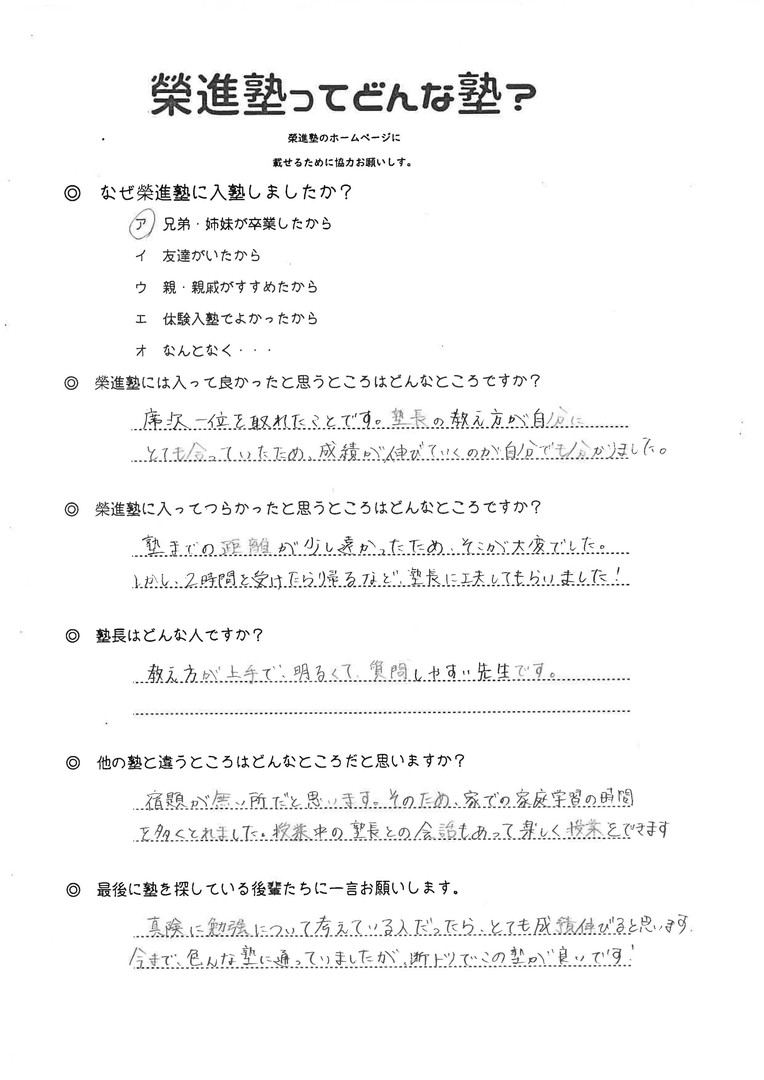 榮進塾ってどんな塾？
榮進塾のホームページに
載せるために協力お願いしす。
◎ なぜ榮進塾に入塾しましたか？
ア 兄弟・姉妹が卒業したから
イ 友達がいたから
ウ 親・親戚がすすめたから
エ 体験入塾でよかったから
オ なんとなく・・・
◎ 榮進塾には入って良かったと思うところはどんなところですか？
席次一位を取れたことです。塾長の教え方が自分に
とても合っていたため、成績が伸びていくのが自分でも分かりました。
◎ 榮進塾に入ってつらかったと思うところはどんなところですか？
塾までの距離が少し遠かったため、そこが大変でした。
しかし、2時間を受けたら帰るなど、塾長に工夫してもらいました！
◎ 塾長はどんな人ですか？
教え方が上手で、明るくて、質問しやすい先生です。
◎ 他の塾と違うところはどんなところだと思いますか？
宿題が無い所だと思います。そのため、家での家庭学習の時間
を多くとれました。授業中の塾長との会話もあって楽しく授業をできます
◎ 最後に塾を探している後輩たちに一言お願いします。
真険に勉強について考えている人だったら、とても成績伸びると思います。
今まで、色んな塾に通っていましたが、断トツでこの塾が良いです！